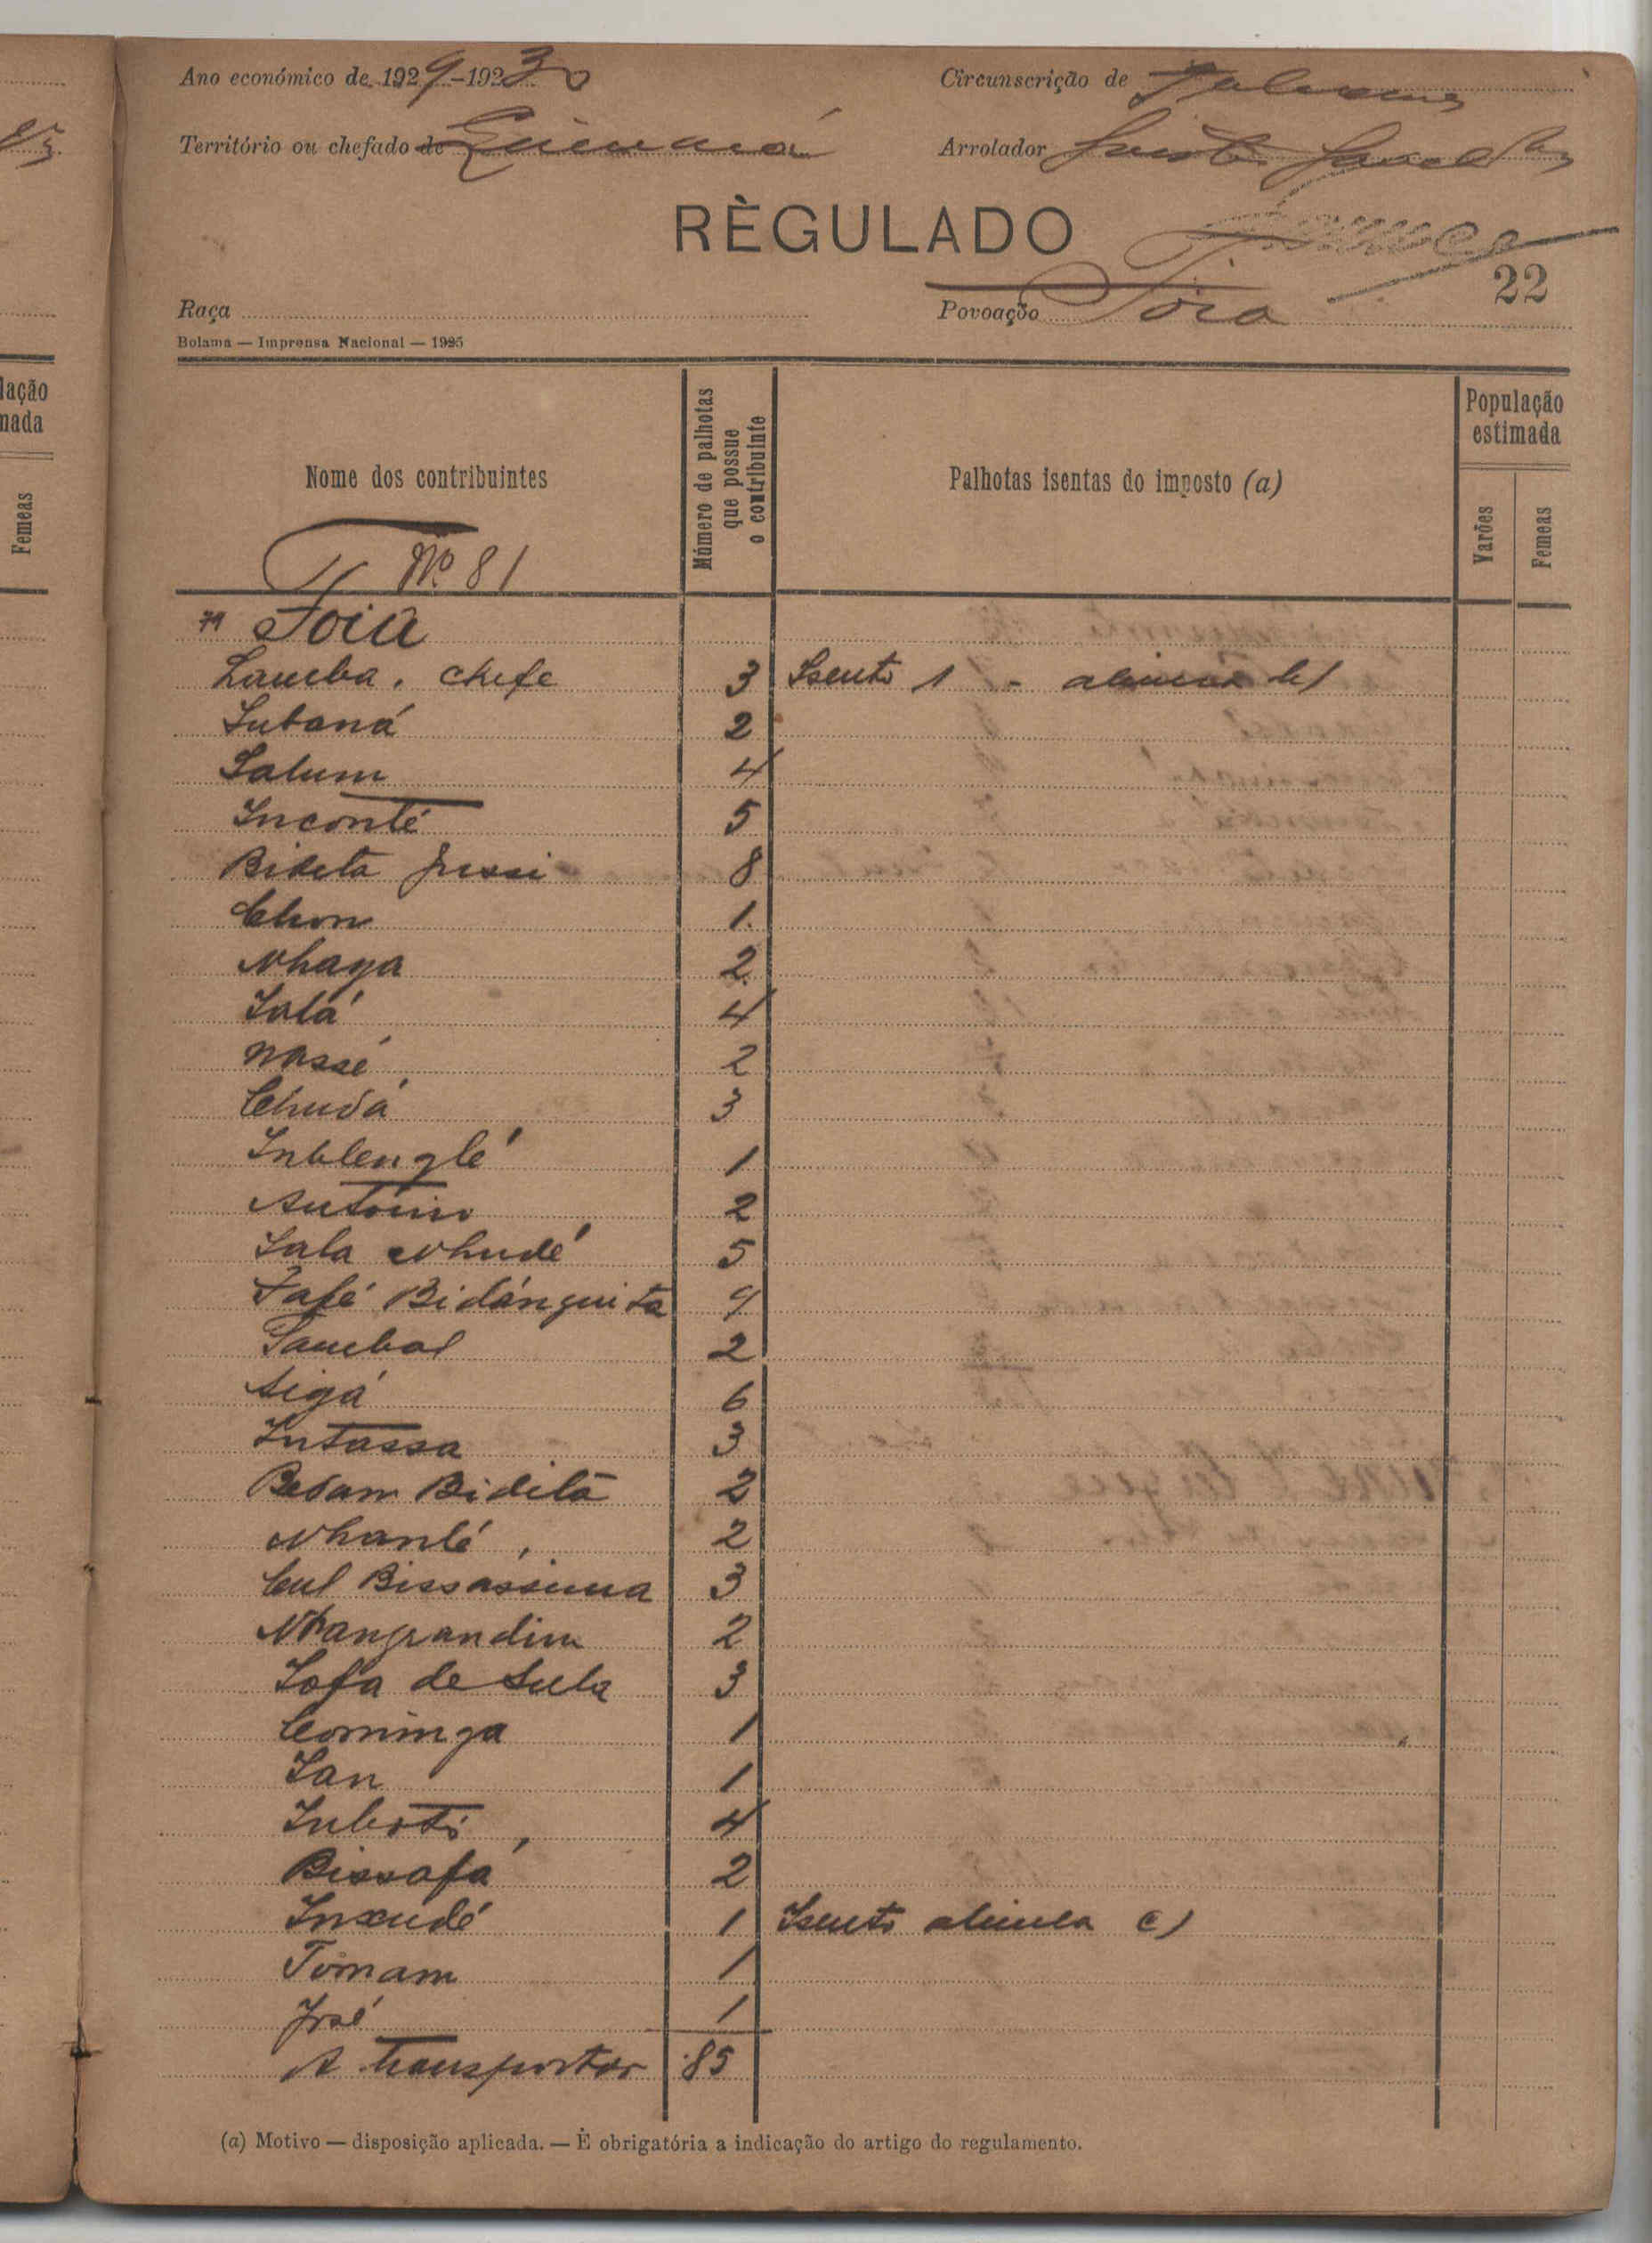 Ano económico de 1929-1930
Circunscrição de
Território ou chefado de
Arrolador
RÈGULADO
22
Raça
Povoação Foia
Bolama — Imprensa Nacional — 1925
Nome dos contribuintes
Número de palhotas que possue o contribuinte
Palhotas isentas do imposto (a)
População estimada
Varões
Femeas
Nº 81
Foia
Lamba, chefe 3 Isento 1 - alinea b)
Intaná 2
Salum 4
Inconté 5
8
Chon 1
Nhaga 2
Ialá 4
Nassé 2
Chudá 3
Inblenglé 1
António 2
Iala Nhudé 5
Bidánguita 9
Sambal 2
Aigá 6
Intassa 3
Bedam Biditá 2
Nhanlé 2
Cul Bissassema 3
Nhangrandim 2
2
3
Cominga 1
Ian 1
Inboti 4
Bissafá 2
Inxudé 1 Isento alinea c)
Tomam 1
José 1
A transportar 85
(a) Motivo — disposição aplicada. — É obrigatória a indicação do artigo do regulamento.
lação
nada
Femeas